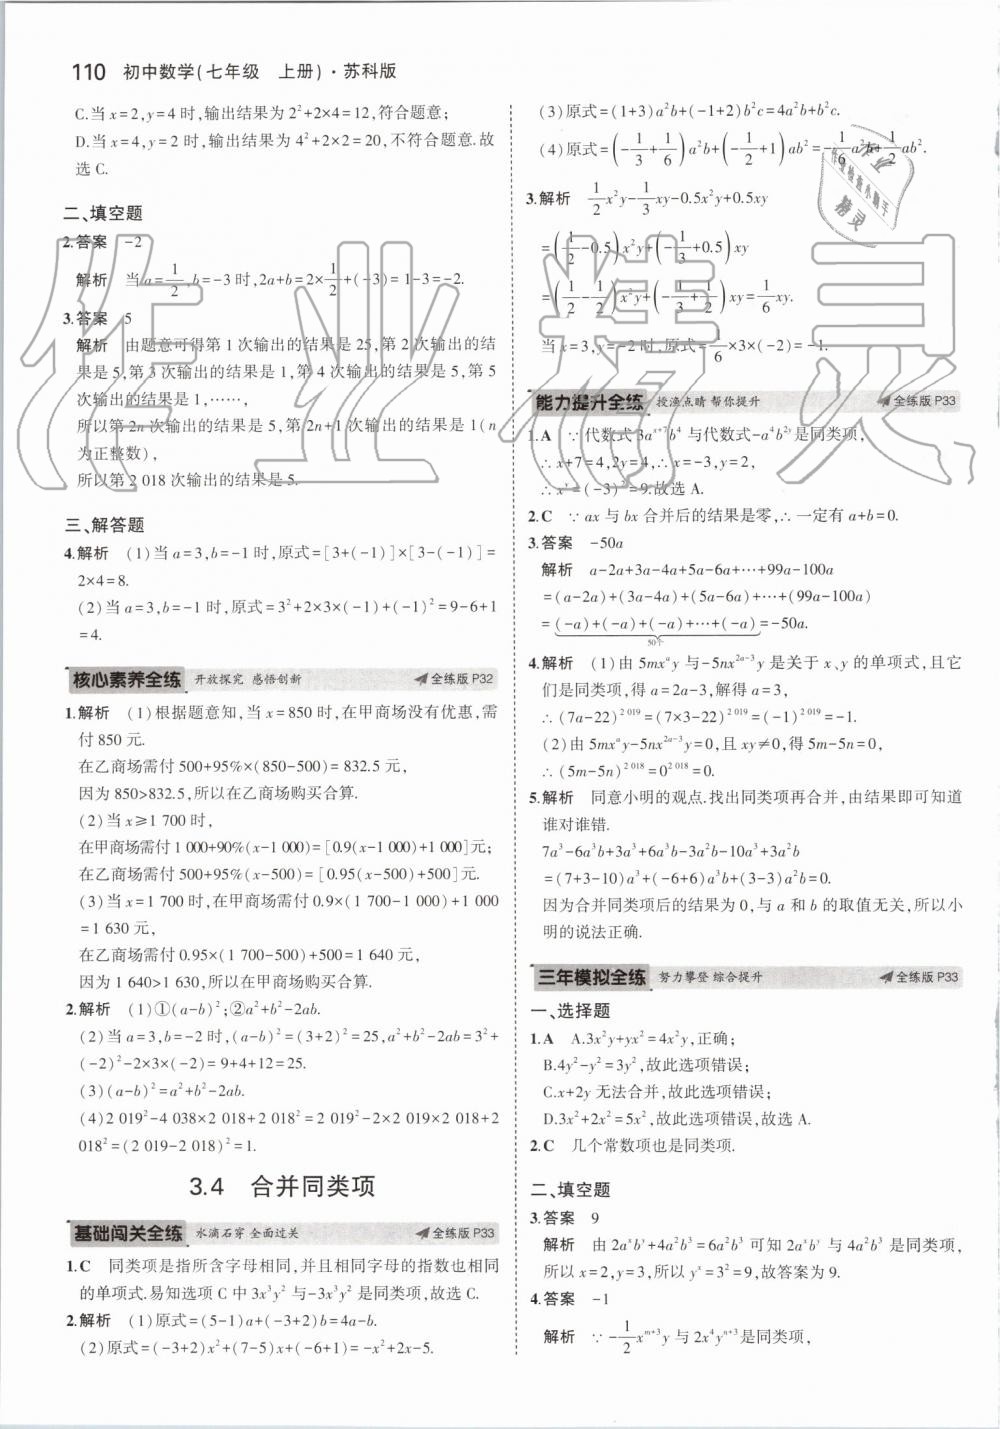 110 初中数学(七年级 上册)·苏科版
C.当x=2,y=4时,输出结果为2²+2×4=12,符合题意;
D.当x=4,y=2时,输出结果为4²+2×2=20,不符合题意.故
选C.
二、填空题
2.答案 -2
解析 当a=1/2,b=-3时,2a+b=2×1/2+(-3)=1-3=-2.
3.答案 5
解析 由题意可得第1次输出的结果是25,第2次输出的结
果是5,第3次输出的结果是1,第4次输出的结果是5,第5
次输出的结果是1,……,
所以第2n次输出的结果是5,第2n+1次输出的结果是1(n
为正整数),
所以第2 018次输出的结果是5.
三、解答题
4.解析 (1)当a=3,b=-1时,原式=[3+(-1)]×[3-(-1)]=
2×4=8.
(2)当a=3,b=-1时,原式=3²+2×3×(-1)+(-1)²=9-6+1
=4.
核心素养全练 开放探究 感悟创新 全练版P32
1.解析 (1)根据题意知,当x=850时,在甲商场没有优惠,需
付850元.
在乙商场需付500+95%×(850-500)=832.5元,
因为850>832.5,所以在乙商场购买合算.
(2)当x≥1 700时,
在甲商场需付1 000+90%(x-1 000)=[0.9(x-1 000)+1 000]元;
在乙商场需付500+95%(x-500)=[0.95(x-500)+500]元.
(3)当x=1 700时,在甲商场需付0.9×(1 700-1 000)+1 000
=1 630元,
在乙商场需付0.95×(1 700-500)+500=1 640元,
因为1 640>1 630,所以在甲商场购买合算.
2.解析 (1)①(a-b)²;②a²+b²-2ab.
(2)当a=3,b=-2时,(a-b)²=(3+2)²=25,a²+b²-2ab=3²+
(-2)²-2×3×(-2)=9+4+12=25.
(3)(a-b)²=a²+b²-2ab.
(4)2 019²-4 038×2 018+2 018²=2 019²-2×2 019×2 018+2
018²=(2 019-2 018)²=1.
3.4 合并同类项
基础闯关全练 水滴石穿 全面过关 全练版P33
1.C 同类项是指所含字母相同,并且相同字母的指数也相同
的单项式.易知选项C中3x³y²与-3x³y²是同类项,故选C.
2.解析 (1)原式=(5-1)a+(-3+2)b=4a-b.
(2)原式=(-3+2)x²+(7-5)x+(-6+1)=-x²+2x-5.
(3)原式=(1+3)a²b+(-1+2)b²c=4a²b+b²c.
(4)原式=(-1/3+1/6)a²b+(-1/2+1)ab²=-1/6a²b+1/2ab².
3.解析 1/2x²y-1/3xy-0.5x²y+0.5xy
=(1/2-0.5)x²y+(-1/3+0.5)xy
=(1/2-1/2)x²y+(-1/3+1/2)xy=1/6xy.
当x=3,y=-2时,原式=1/6×3×(-2)=-1.
能力提升全练 授渔点睛 帮你提升 全练版P33
1.A ∵代数式3aˣ⁺⁷b⁴与代数式-a⁴b²ʸ是同类项,
∴x+7=4,2y=4,∴x=-3,y=2,
∴xʸ=(-3)²=9.故选A.
2.C ∵ax与bx合并后的结果是零,∴一定有a+b=0.
3.答案 -50a
解析 a-2a+3a-4a+5a-6a+…+99a-100a
=(a-2a)+(3a-4a)+(5a-6a)+…+(99a-100a)
=(-a)+(-a)+(-a)+…+(-a)=-50a.
50个
4.解析 (1)由5mxᵃy与-5nx²ᵃ⁻³y是关于x、y的单项式,且它
们是同类项,得a=2a-3,解得a=3,
∴(7a-22)²⁰¹⁹=(7×3-22)²⁰¹⁹=(-1)²⁰¹⁹=-1.
(2)由5mxᵃy-5nx²ᵃ⁻³y=0,且xy≠0,得5m-5n=0,
∴(5m-5n)²⁰¹⁸=0²⁰¹⁸=0.
5.解析 同意小明的观点.找出同类项再合并,由结果即可知道
谁对谁错.
7a³-6a³b+3a³+6a³b-3a²b-10a³+3a²b
=(7+3-10)a³+(-6+6)a³b+(3-3)a²b=0.
因为合并同类项后的结果为0,与a和b的取值无关,所以小
明的说法正确.
三年模拟全练 努力攀登 综合提升 全练版P33
一、选择题
1.A A.3x²y+yx²=4x²y,正确;
B.4y²-y²=3y²,故此选项错误;
C.x+2y无法合并,故此选项错误;
D.3x²+2x²=5x²,故此选项错误,故选A.
2.C 几个常数项也是同类项.
二、填空题
3.答案 9
解析 由2aˣbʸ+4a²b³=6a²b³可知2aˣbʸ与4a²b³是同类项,
所以x=2,y=3,所以yˣ=3²=9,故答案为9.
4.答案 -1
解析 ∵-1/2xᵐ⁺³y与2x⁴yⁿ⁺³是同类项,
作业精灵
作业检查小助手